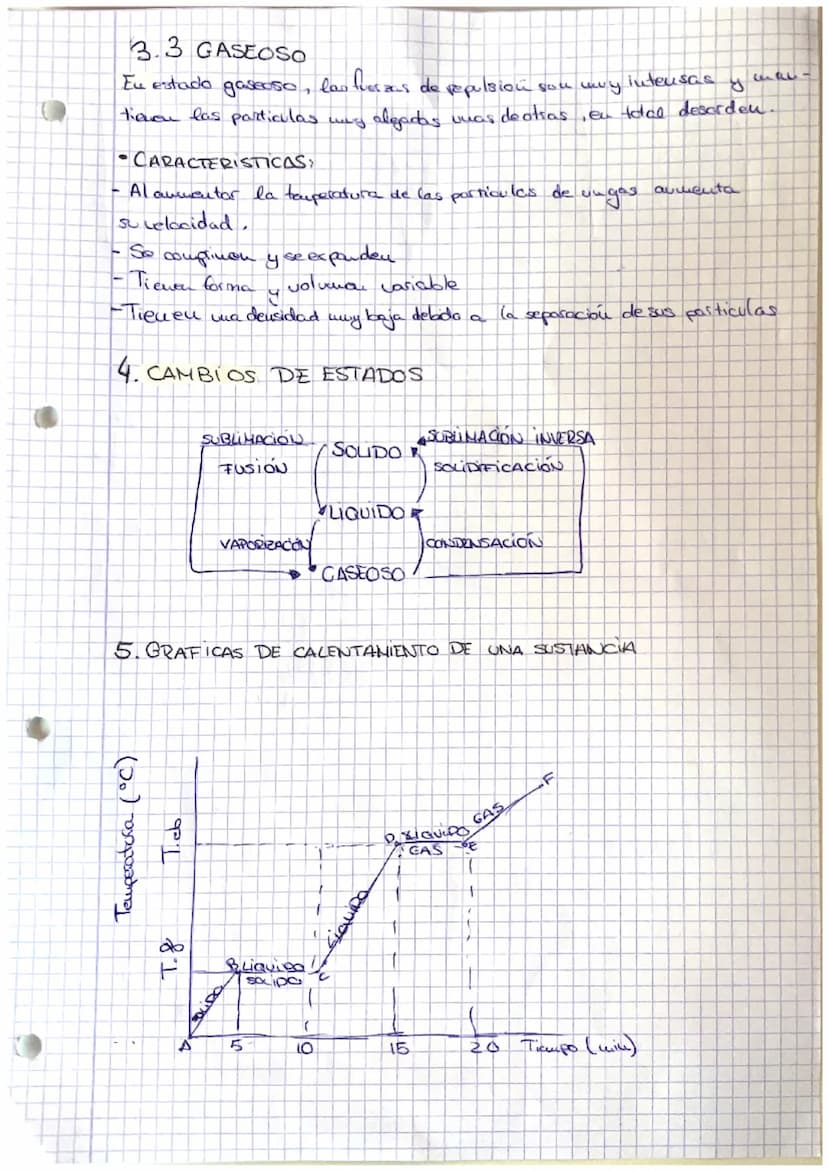 3.3 GASEOSO
En estado gaseoso, las fuerzas de repulsión son muy intensas y man-
tienen las particulas muy alejadas unas de otras, en total desorden.
• CARACTERISTICAS:
- Al aumentar la temperatura de las particulas de un gas aumenta
su velocidad.
- Se comprimen y se expanden
- Tienen forma y volumen variable
- Tienen una densidad muy baja debido a la separación de sus particulas
4. CAMBIOS DE ESTADOS
SUBLIMACIÓN SOLIDO SUBLIMACIÓN INVERSA
FUSIÓN SOLIDIFICACIÓN
LIQUIDO
VAPORIZACIÓN CONDENSACIÓN
GASEOSO
5. GRAFICAS DE CALENTAMIENTO DE UNA SUSTANCIA
Temperatura (°C)
T.eb
T.f
F
GAS
D LIQUIDO
GAS E
LIQUIDO
B LIQUIDO
SOLIDO C
SOLIDO
A 5 10 15 20 Tiempo (min)